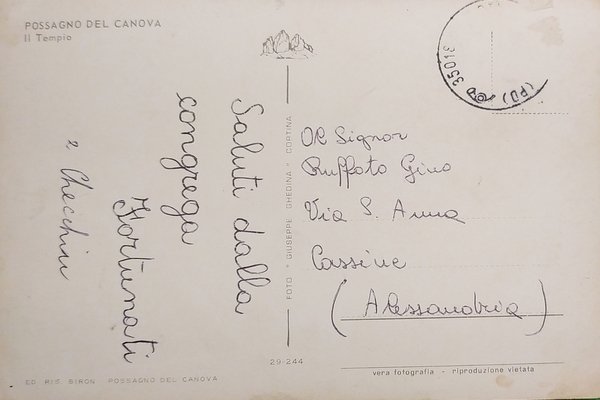 POSSAGNO DEL CANOVA
Il Tempio
Saluti dalla
congrega
Fortunati
e Checchin
FOTO * GIUSEPPE GHEDINA * CORTINA
35018
(PD)
Al Signor
Ruffato Gino
Via S. Anna
Cassine
(Alessandria)
29-244
ED. RIS. BIRON POSSAGNO DEL CANOVA
vera fotografia - riproduzione vietata